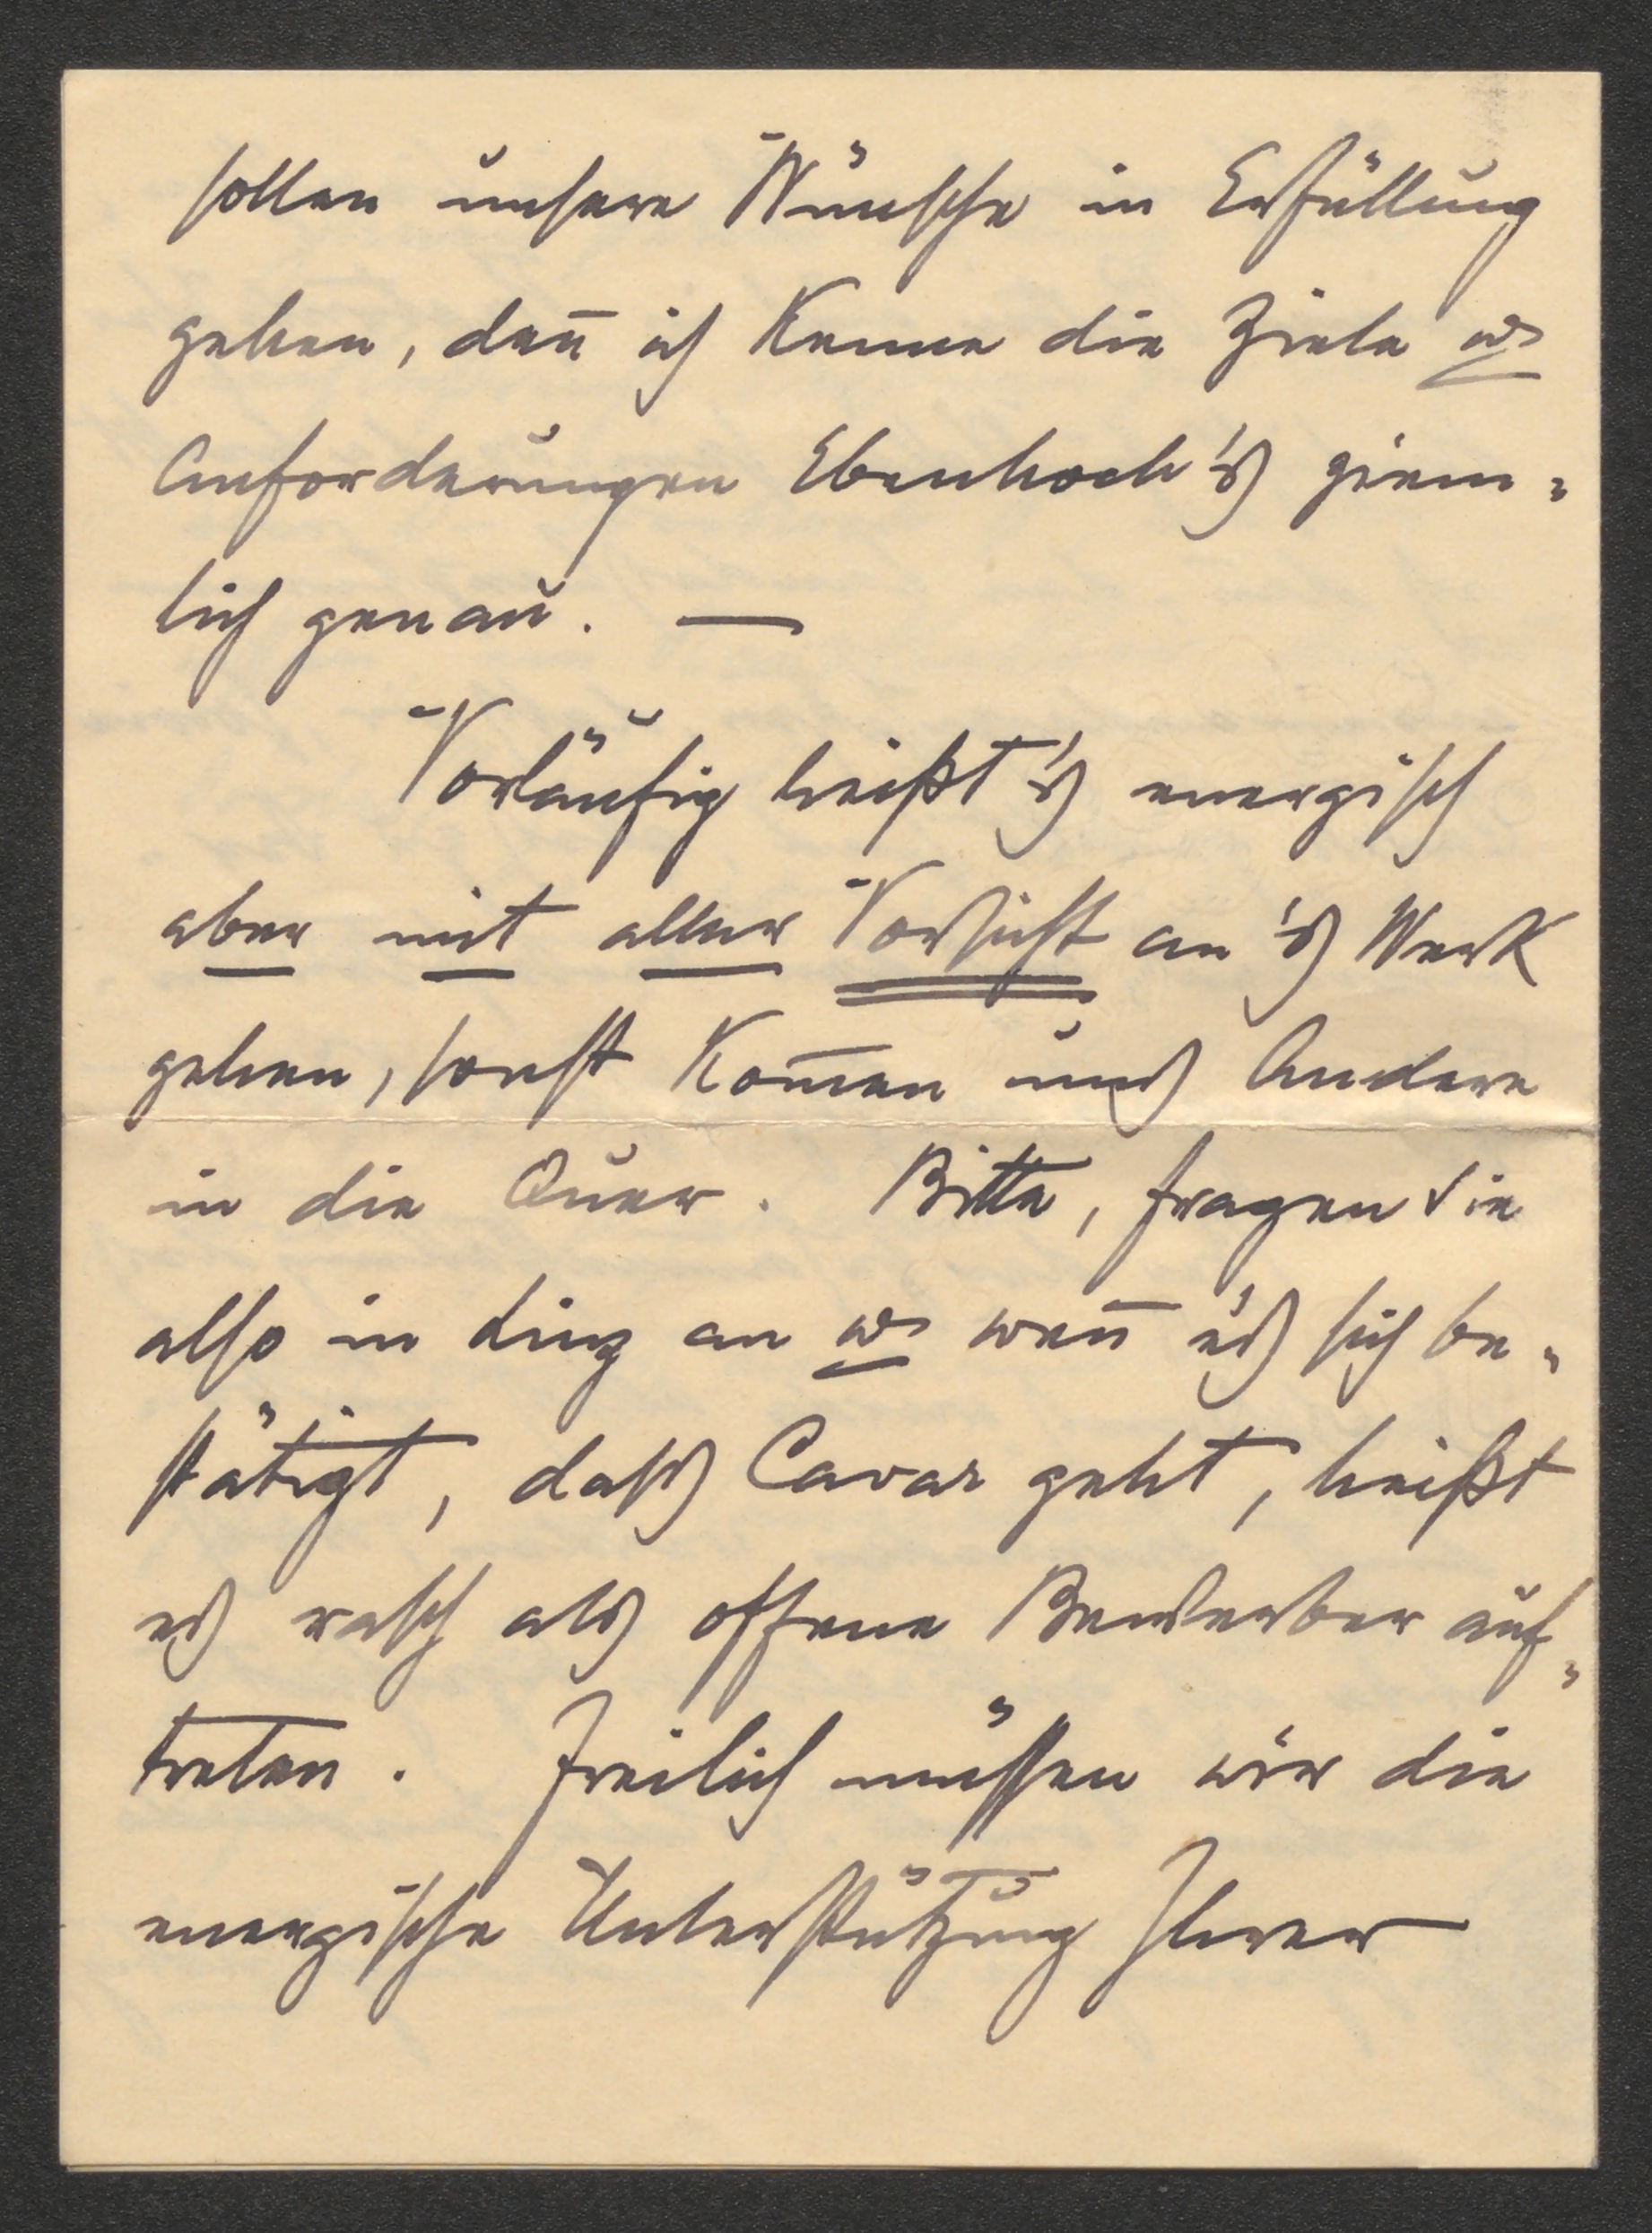 sollen unsere Wünsche in Erfüllung
gehen, den̄ ich kenne die Ziele u.
Anforderungen Ebenhoch's ziem=
lich genau. —
Vorläufig heißt's energisch
aber mit aller Vorsicht an's Werk
gehen, sonst kom̄en uns Andere
in die Quer. Bitte, fragen Sie
also in Linz an u. wen̄ es sich be=
stätigt, dass Cavar geht, heißt
es rasch als offene Bewerber auf=
treten. Freilich müssen wir die
energische Unterstützung Ihrer